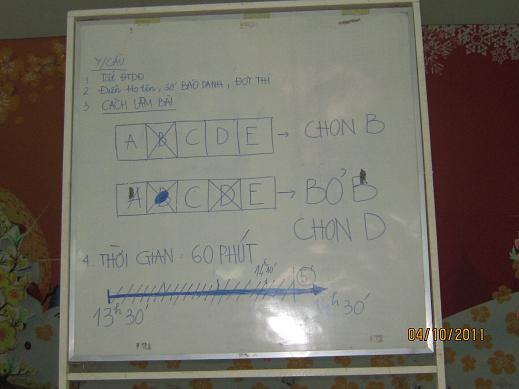 Y/CẦU
1 TẮT ĐTDĐ
2 Điền Họ tên, SỐ BÁO DANH, ĐỢT THI
3 CÁCH LÀM BÀI
A B C D E → CHỌN B
A B C D E → BỎ B
CHỌN D
4. THỜI GIAN: 60 PHÚT
5'
13h30' 14h30'
04/10/2011